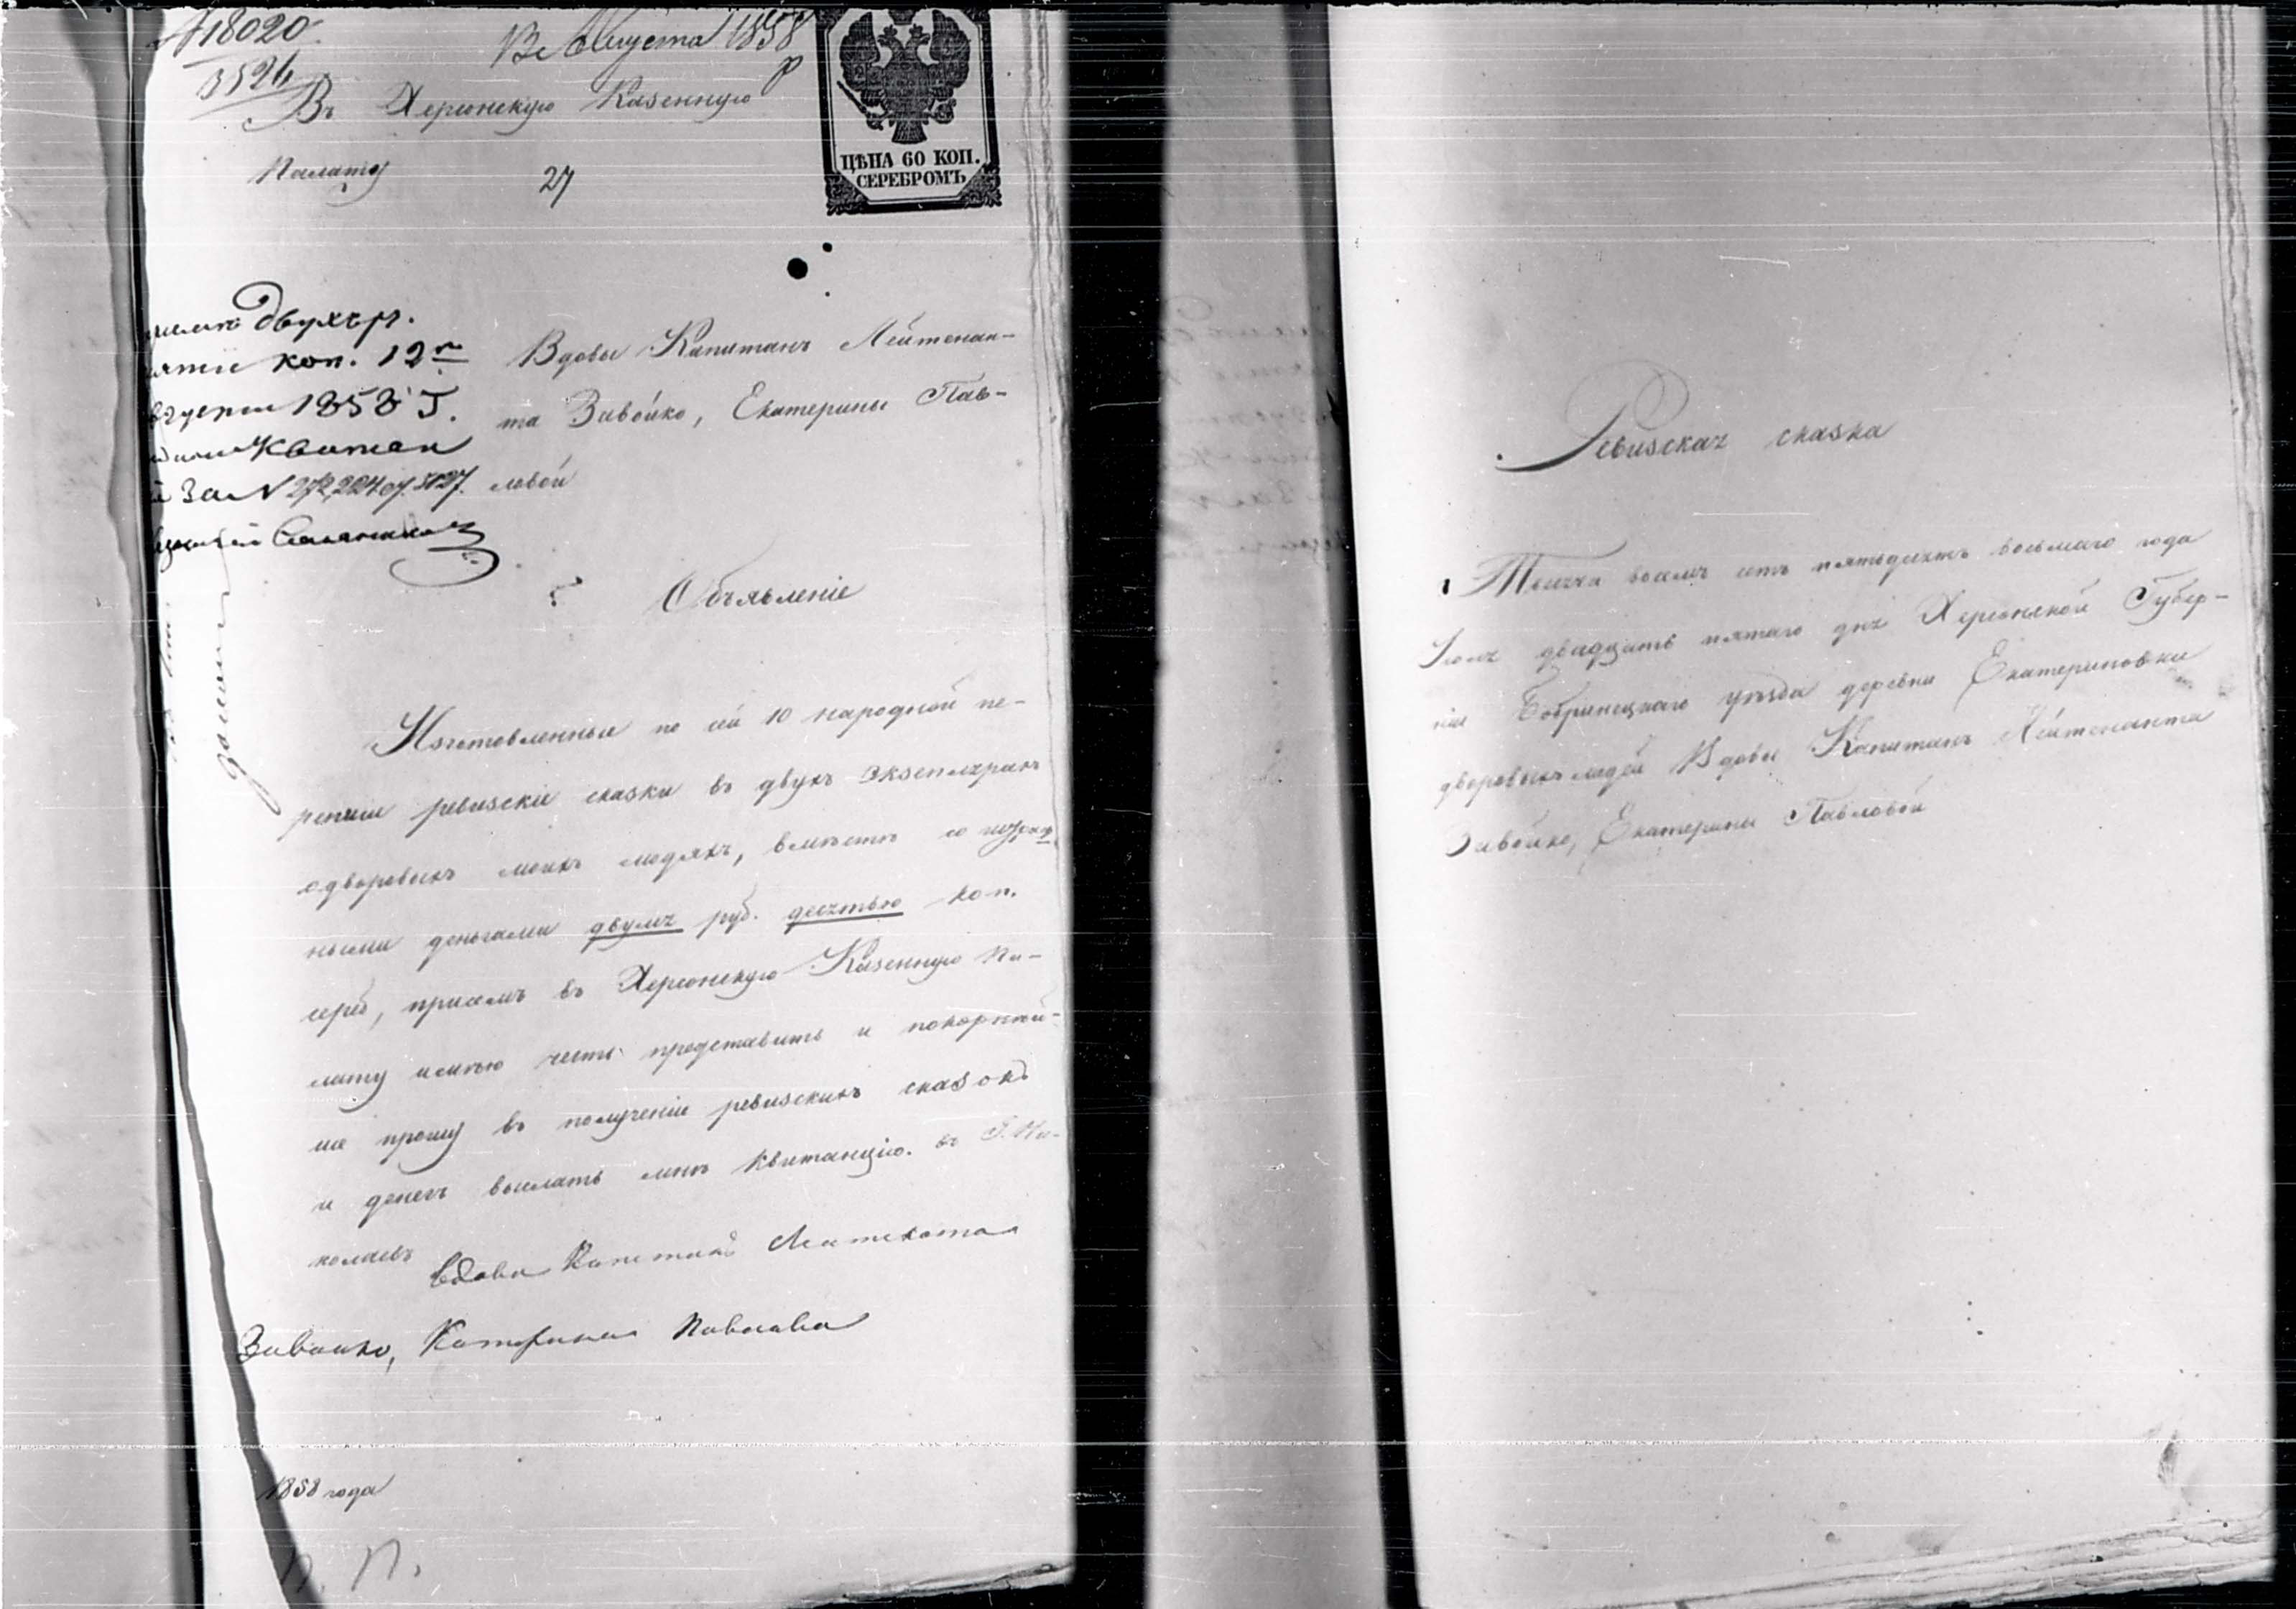 18020
3526
Августа 1858
Въ Херсонскую Казенную
Палату
27
ЦѢНА 60 КОП.
СЕРЕБРОМЪ
двухъ р.
коп. 12го
1858 Г.
Квитан
за №
Вдовы Капитанъ Лейтенан-
та Завойко, Екатерины Пав-
ловой
Объявленіе
Изготовленные по сей 10 народной пе-
реписи ревизскіе сказки въ двухъ экземплярахъ
одворовыхъ моихъ людяхъ, вмѣстѣ со
ными деньгами двумя руб. десятью коп.
сереб, при семъ въ Херсонскую Казенную Па-
лату имѣю честь представить и покорнѣй-
ше прошу въ полученіи ревизскихъ сказокъ
и денегъ выслать мнѣ квитанцію. въ Г. Ни-
колаевъ
Вдова Капетанъ
Завойко, Катерина Павлова
1858 года
Ревизская сказка
Тысяча восемь сотъ пятьдесятъ восьмаго года
Іюля двадцать пятаго дня Херсонской Губер-
ніи Бобринецкаго уѣзда деревни Екатериновки
дворовыхъ людей Вдовы Капитанъ Лейтенанта
Завойко, Екатерины Павловой